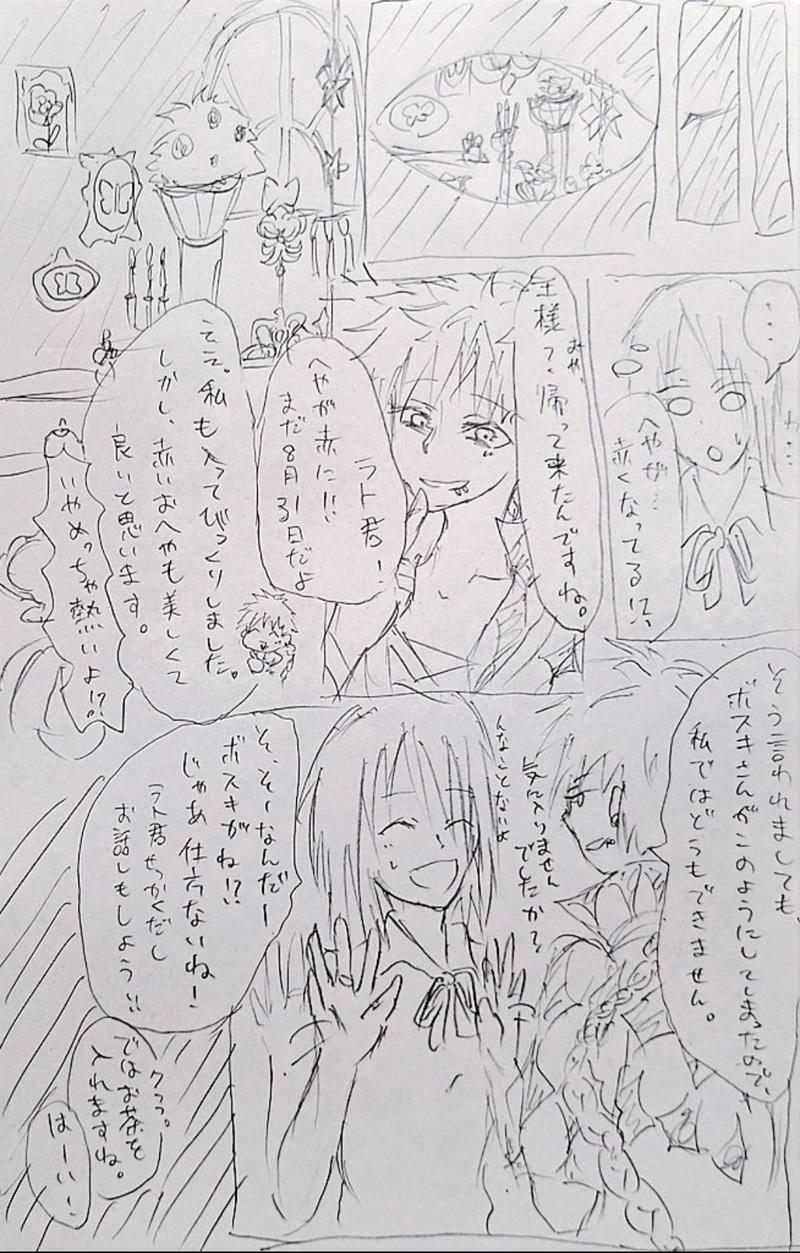 ・・・
へやが…
赤くなってる!?
おや、
王様?帰って来たんですね。
ラト君!
へやが赤に!!
まだ8月31日だよ
ええ。私も入ってびっくりしました。
しかし、赤いおへやも美しくて
良いと思います。
いやめっちゃ熱いよ!?
そう言われましても、
ボスキさんがこのようにしてしまったので、
私ではどうもできません。
気に入りません
でしたか?
んなことないよ
そ、そーなんだー
ボスキがね!?
じゃあ仕方ないね!
ラト君せっかくだし
お話しもしよう!!
クフっ。
ではお茶を
入れますね。
はーい!